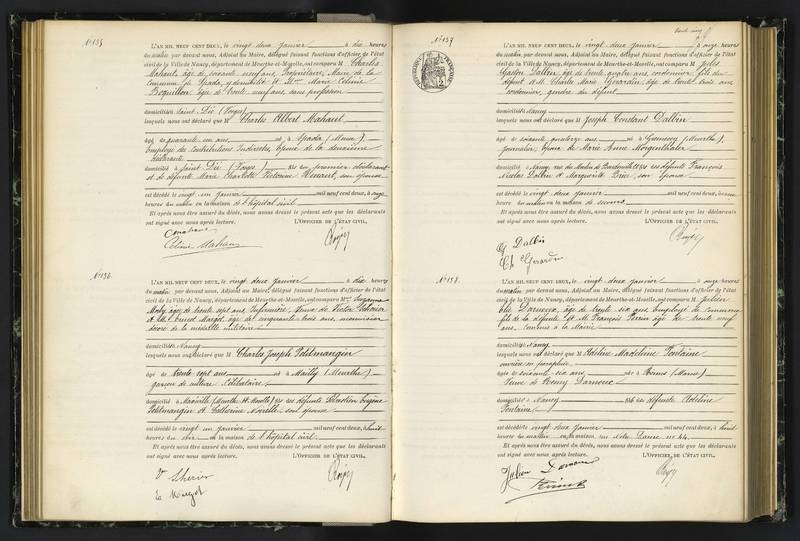 N° 135
L'AN MIL NEUF CENT DEUX, le vingt deux janvier à dix heures
du matin par devant nous, Adjoint au Maire, délégué faisant fonctions d'officier de l'état
civil de la Ville de Nancy, département de Meurthe-et-Moselle, ont comparu M Charles
Mahaut, âgé de soixante neuf ans, Propriétaire, Maire de la
Commune de Spada, y domicilié et Mme Marie Céline
Boquillon âgée de trente neuf ans sans profession
domiciliés à Saint Dié (Vosges)
lesquels nous ont déclaré que M Charles Albert Mahaut
âgé de quarante un ans né à Spada (Meuse)
Employé des Contributions Indirectes, époux de la deuxième
déclarante
domicilié à Saint Dié (Vosges) fils du premier déclarant
et de défunte Marie Charlotte Victorine son épouse
est décédé le vingt un janvier mil neuf cent deux, à onze
heures du matin en la maison de l'hôpital civil
Et après nous être assuré du décès, nous avons dressé le présent acte que les déclarants
ont signé avec nous après lecture. L'OFFICIER DE L'ÉTAT CIVIL,
Céline Mahaut
N° 136
L'AN MIL NEUF CENT DEUX, le vingt deux janvier à dix heures
du matin par devant nous, Adjoint au Maire, délégué faisant fonctions d'officier de l'état
civil de la Ville de Nancy, département de Meurthe-et-Moselle, ont comparu Mme Suzanne
âgée de trente sept ans Infirmière, Veuve de Victor
et M. Ernest Margot, âgé de cinquante trois ans, menuisier
décoré de la médaille militaire
domiciliés à Nancy
lesquels nous ont déclaré que M Charles Joseph Petitmangin
âgé de trente sept ans né à Mailly (Meurthe)
garçon de culture Célibataire
domicilié à Maxéville (Meurthe et Moselle) fils des défunts Sébastien
Petitmangin et Catherine son épouse
est décédé le vingt un janvier mil neuf cent deux, à huit
heures du soir en la maison de l'hôpital civil
Et après nous être assuré du décès, nous avons dressé le présent acte que les déclarants
ont signé avec nous après lecture. L'OFFICIER DE L'ÉTAT CIVIL,
N° 137
L'AN MIL NEUF CENT DEUX, le vingt deux janvier à onze heures
du matin par devant nous, Adjoint au Maire, délégué faisant fonctions d'officier de l'état
civil de la Ville de Nancy, département de Meurthe-et-Moselle, ont comparu M Jules
Gaston Dalbin, âgé de trente quatre ans, cordonnier, fils du
défunt et M. Charles Marie Gérardin âgé de trente trois ans
cordonnier, gendre du défunt
domiciliés à Nancy
lesquels nous ont déclaré que M Joseph Constant Dalbin
âgé de soixante quatorze ans né à (Meurthe)
journalier, époux de Marie Anne Morgenthaler
domicilié à Nancy, rue du fils des défunts François
Nicolas Dalbin et Marguerite son épouse
est décédé le vingt deux janvier mil neuf cent deux,
heure du matin en la maison de secours
Et après nous être assuré du décès, nous avons dressé le présent acte que les déclarants
ont signé avec nous après lecture. L'OFFICIER DE L'ÉTAT CIVIL,
G Dalbin
Ch Gerardin
N° 138
L'AN MIL NEUF CENT DEUX, le vingt deux janvier à onze heures
du matin par devant nous, Adjoint au Maire, délégué faisant fonctions d'officier de l'état
civil de la Ville de Nancy, département de Meurthe-et-Moselle, ont comparu M Julien
âgé de trente six ans Employé de commerce
fils de la défunte et M François âgé de trente neuf
ans, commis à la Mairie
domiciliés à Nancy
lesquels nous ont déclaré que M Adeline Madeleine Fontaine
âgée de soixante six ans née à Reims (Marne)
Veuve de Remy
domiciliée à Nancy fille de défunte Adeline
Fontaine
est décédée le vingt deux janvier mil neuf cent deux, à huit
heures du matin en sa maison rue Notre Dame no 44
Et après nous être assuré du décès, nous avons dressé le présent acte que les déclarants
ont signé avec nous après lecture. L'OFFICIER DE L'ÉTAT CIVIL,